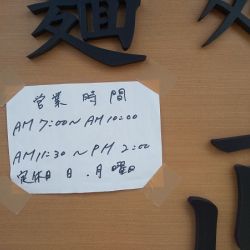 麺
営業時間
AM 7:00~AM 10:00
AM 11:30~PM 2:00
定休日 日.月曜日